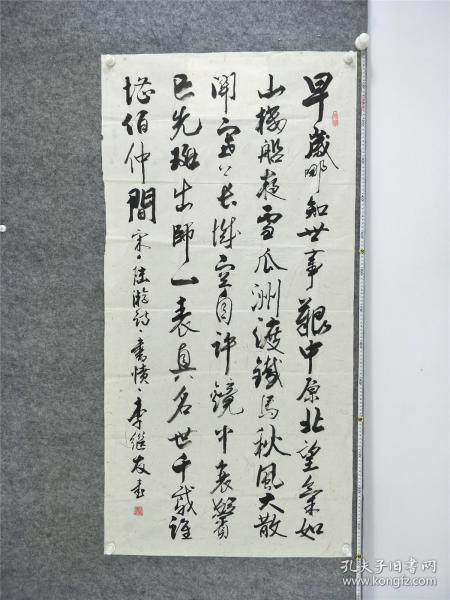 早歲哪知世事艱中原北望氣如
山樓船夜雪瓜洲渡鐵馬秋風大散
関塞上長城空自許鏡中衰鬢
已先斑出師一表真名世千載誰
堪伯仲間宋·陸游詩·書憤·李繼友書
孔夫子旧书网
www.kongfz.com